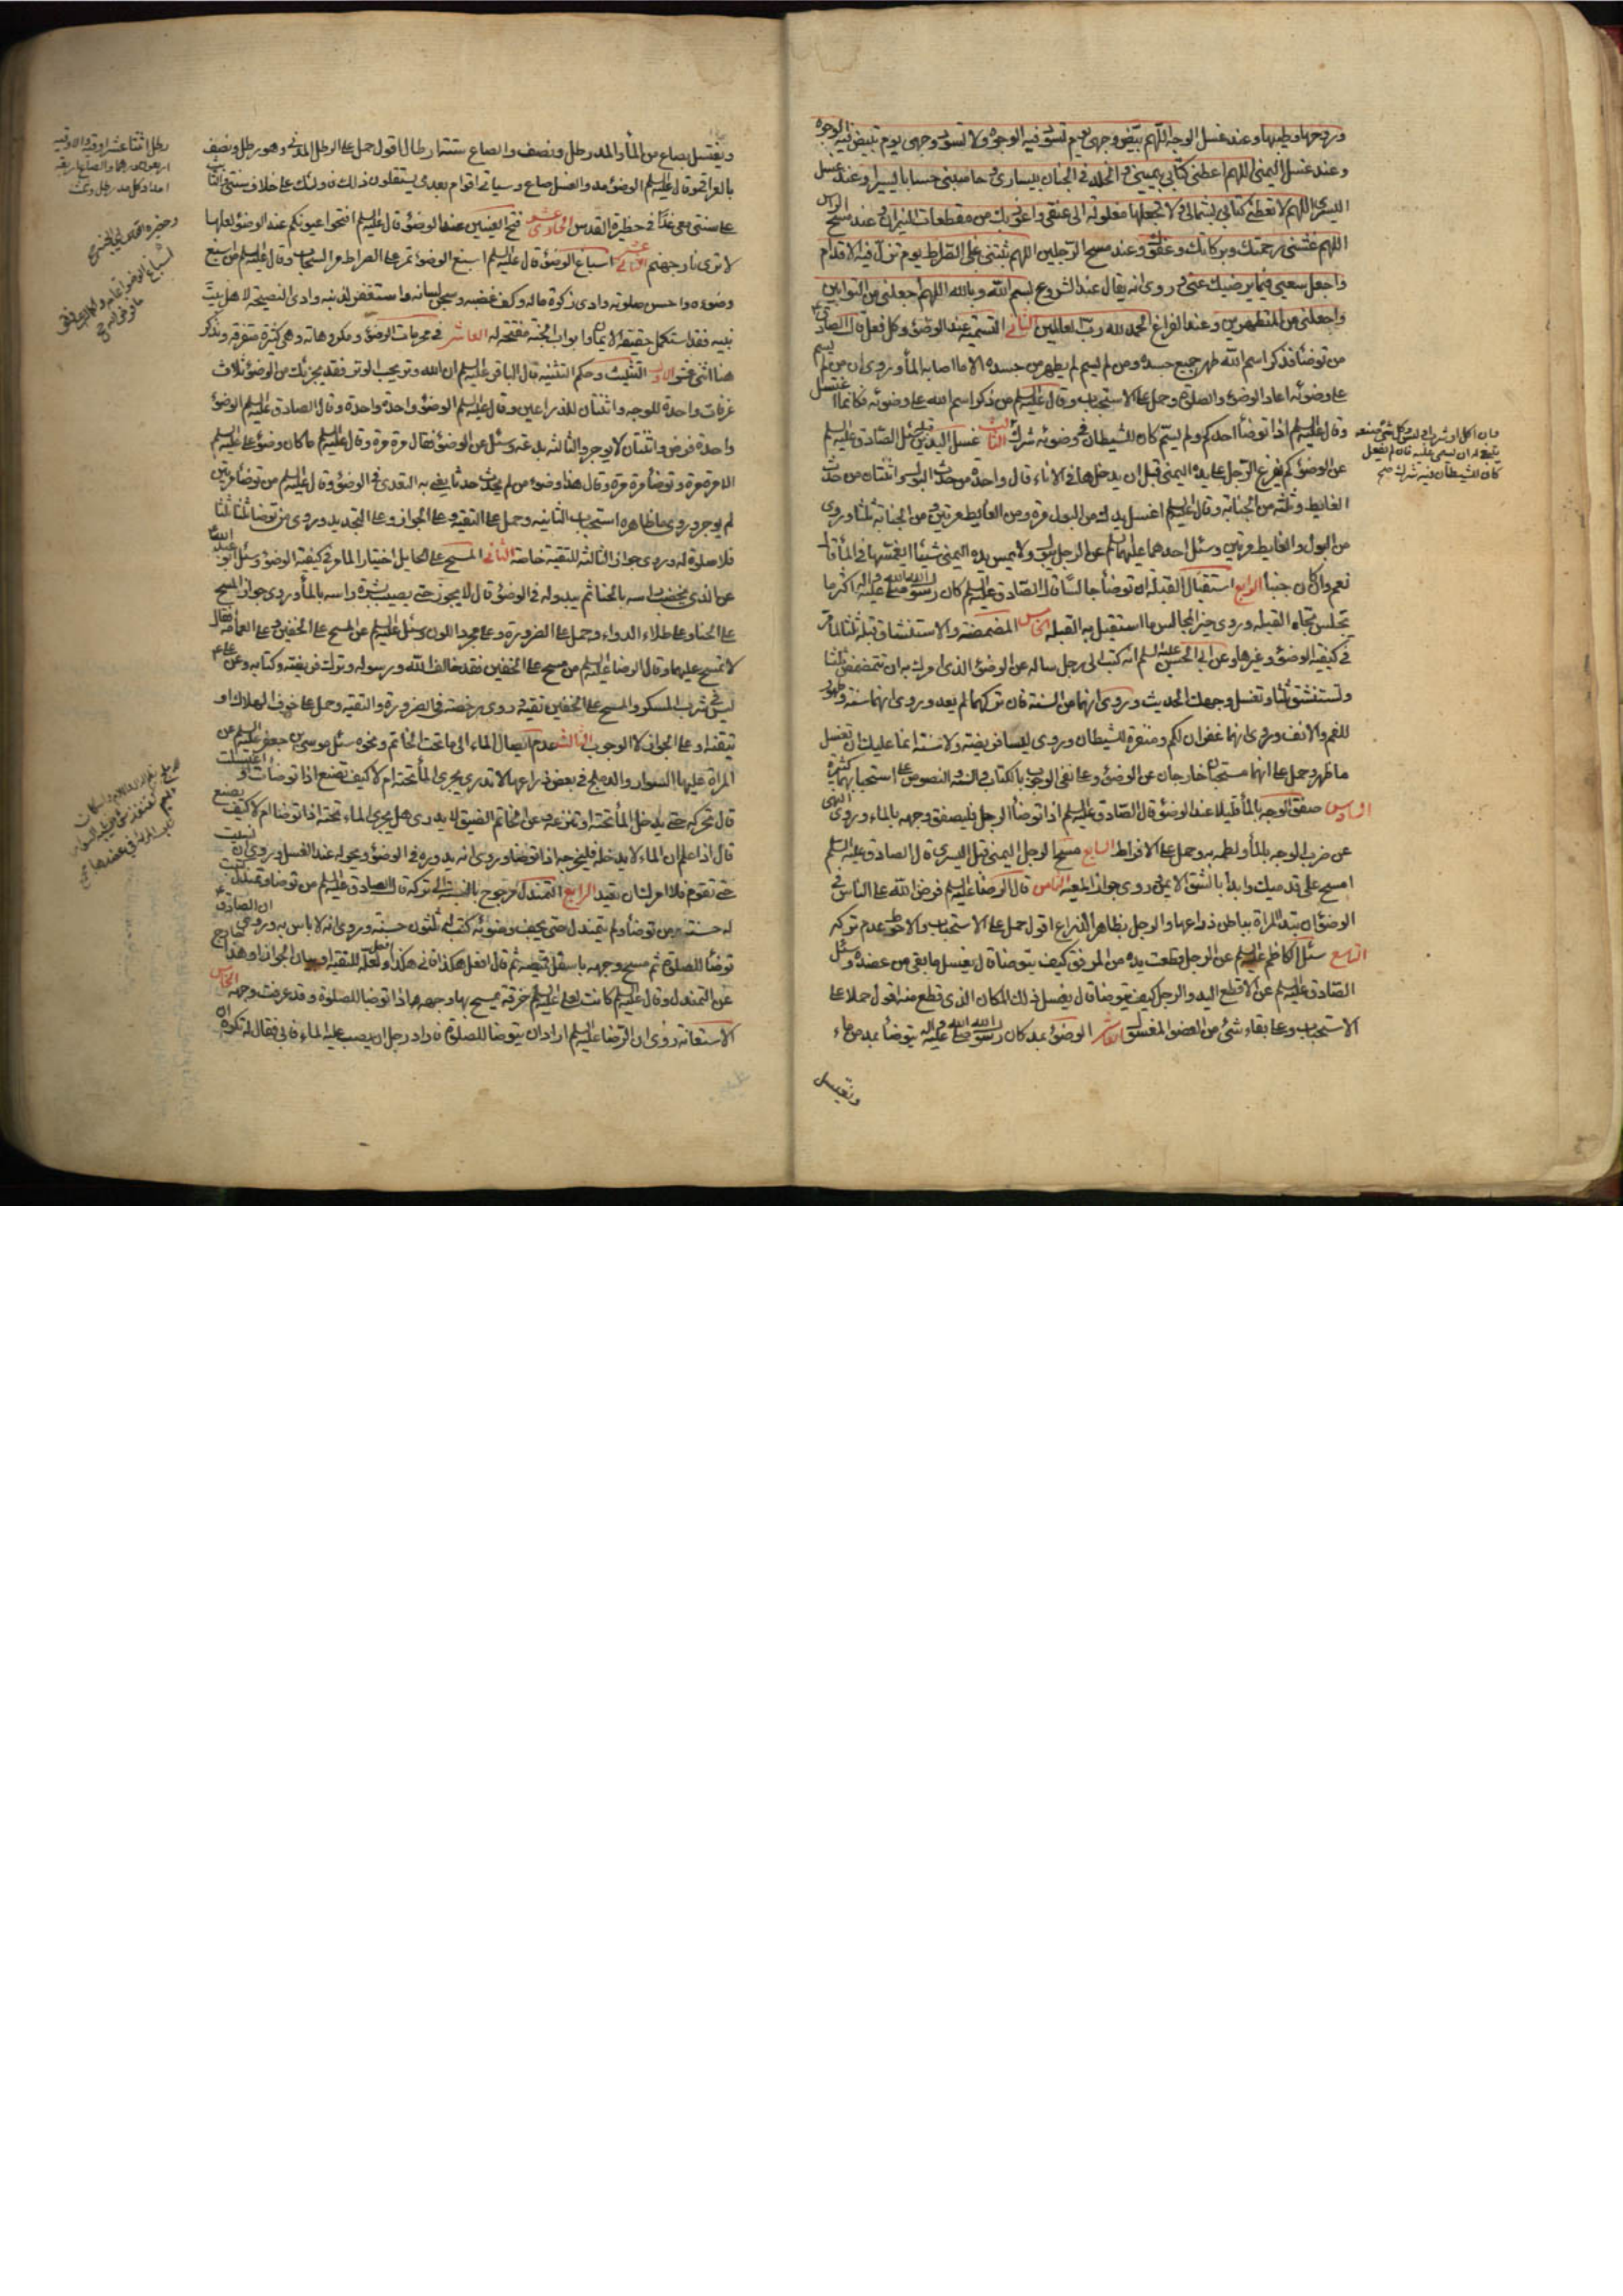 وريحها وطيبها وعند غسل الوجه اللهم بيض وجهي يوم تسود فيه الوجوه ولا تسود وجهي يوم تبيض فيه الوجوه
وعند غسل اليمنى اللهم اعطني كتابي بيميني والخلد في الجنان بيساري وحاسبني حسابا يسيرا وعند غسل
اليسرى اللهم لا تعطني كتابي بشمالي ولا تجعلها مغلولة الى عنقي واعوذ بك من مقطعات النيران وعند مسح الراس
اللهم غشني رحمتك وبركاتك وعفوك وعند مسح الرجلين اللهم ثبتني على الصراط يوم تزل فيه الاقدام
واجعل سعيي فيما يرضيك عني وروى انه يقال عند الشروع بسم الله وبالله اللهم اجعلني من التوابين
واجعلني من المتطهرين وعند الفراغ الحمد لله رب العالمين الثاني التسمية عند الوضوء وكل فعل قال الصادق ع
من توضأ فذكر اسم الله طهر جميع جسده ومن لم يسم لم يطهر من جسده الا ما اصابه الماء وروى ان من لم يسم
على وضوئه اعاد الوضوء والصلوة وحمل على الاستحباب وقال عليه السلم من ذكر اسم الله على وضوئه فكانما اغتسل
وقال عليه السلم اذا توضأ احدكم ولم يسم كان للشيطان في وضوئه شرك الثالث غسل اليدين قبل سئل الصادق عليه السلم
فان اكل او شرب او لبس وكل شئ صنعه
ينبغي له ان يسمى عليه فان لم يفعل
كان للشيطان فيه شرك صح
عن الوضوء كم يفرغ الرجل على يده اليمنى قبل ان يدخلها في الاناء قال واحدة من حدث البول واثنتان من حدث
الغايط وثلثة من الجنابة وقال عليه السلم اغسل يدك من البول مرة ومن الغايط مرتين ومن الجنابة ثلثا وروى
من البول والغايط مرتين وسئل احدهما عليهما السلم عن الرجل يبول ولا يمس يده اليمنى شيئا ايغمسها في الماء قال
نعم وان كان جنبا الرابع استقبال القبلة ان توضأ جالسا قال الصادق عليه السلم كان رسول الله صلى الله عليه واله اكثر ما
يجلس تجاه القبلة وروى خير المجالس ما استقبل به القبلة الخامس المضمضة والاستنشاق قبله ثلثا لما مر
في كيفية الوضوء وغيرها وعن ابي الحسن عليه السلم انه كتب الى رجل ساله عن الوضوء الذي امرك به ان تتمضمض ثلثا
وتستنشق ثلثا وتغسل وجهك الحديث وروى انهما من السنة فان تركهما لم يعد وروى انهما سنة وطهور
للفم والانف وروى انهما غفران لكم ومنفرة للشيطان وروى ليسا فريضة ولا سنة انما عليك ان تغسل
ما ظهر وحمل على انهما مستحبان خارجان عن الوضوء وعلى نفى الوجوب بالكتاب والسنة والنصوص على استحبابهما كثيرة
السادس صفق الوجه بالماء قليلا عند الوضوء قال الصادق عليه السلم اذا توضأ الرجل فليصفق وجهه بالماء وروى النهى
عن ضرب الوجه بالماء ولطمه به وحمل على الافراط السابع مسح الرجل اليمنى قبل اليسرى قال الصادق عليه السلم
امسح على قدميك وابدأ بالشق الايمن وروى جواز المعية الثامن قال الرضا عليه السلم فرض الله على الناس في
الوضوء ان تبدء المراة بباطن ذراعها والرجل بظاهر الذراع اقول حمل على الاستحباب والاحوط عدم تركه
التاسع سئل الكاظم عليه السلم عن الرجل قطعت يده من المرفق كيف يتوضأ قال يغسل ما بقى من عضده وسئل
الصادق عليه السلم عن الاقطع اليد والرجل كيف يتوضأ قال يغسل ذلك المكان الذي قطع منه اقول حملا على
الاستحباب وعلى بقاء شئ من العضو المغسول العاشر الوضوء بمد كان رسول الله صلى الله عليه واله يتوضأ بمد من ماء
ويغتسل
ويغتسل بصاع من الماء والمد رطل ونصف والصاع ستة ارطال اقول حمل على الرطل المدني وهو رطل ونصف
بالعراقي وقال عليه السلم الوضوء مد والغسل صاع وسياتى اقوام بعدى يستقلون ذلك فاولئك على خلاف سنتي والثابت
على سنتي معي غدا في حظيرة القدس الحادي عشر فتح العينين عند الوضوء قال عليه السلم افتحوا عيونكم عند الوضوء لعلها
لا ترى نار جهنم الثاني عشر اسباغ الوضوء قال عليه السلم اسبغ الوضوء تمر على الصراط مر السحاب وقال عليه السلم من اسبغ
وضوءه واحسن صلوته وادى زكوة ماله وكف غضبه وسجن لسانه واستغفر لذنبه وادى النصيحة لاهل بيت
نبيه فقد استكمل حقيقة الايمان وابواب الجنة مفتحة له العاشر في محرمات الوضوء ومكروهاته وهي كثيرة متفرقة ونذكر
هنا اثنى عشر الاول التثليث وحكم التثنية قال الباقر عليه السلم ان الله وتر يحب الوتر فقد يجزيك من الوضوء ثلاث
غرفات واحدة للوجه واثنتان للذراعين وقال عليه السلم الوضوء واحدة واحدة وقال الصادق عليه السلم الوضوء
واحدة فرض واثنتان لا يوجر والثالثة بدعة وسئل عن الوضوء فقال مرة مرة وقال عليه السلم ما كان وضوء علي عليه السلم
الا مرة مرة وتوضأ مرة مرة وقال هذا وضوء من لم يحدث حدثا يعني به التعدى في الوضوء وقال عليه السلم من توضأ مرتين
لم يوجر وروى ما ظاهره استحباب الثانية وحمل على التقية وعلى الجواز وعلى التجديد وروى من توضأ ثلثا ثلثا
فلا صلوة له وروى جواز الثالثة للتقية خاصة الثاني المسح على الحايل اختيارا لما مر في كيفية الوضوء وسئل ابو عبد الله ع
عن الذي يخضب راسه بالحنا ثم يبدو له في الوضوء قال لا يجوز حتى يصيب بشرة راسه بالماء وروى جواز المسح
على الحنا وعلى طلاء الدواء وحمل على الضرورة وعلى مجرد اللون وسئل عليه السلم عن المسح على الخفين وعلى العمامة فقال
لا تمسح عليهما وقال الرضا عليه السلم من مسح على الخفين فقد خالف الله ورسوله وترك فريضته وكتابه وعن علي ع
ليس في شرب المسكر والمسح على الخفين تقية وروى رخصة في الضرورة والتقية وحمل على خوف الهلاك او
تيقنه او على الجواز لا الوجوب الثالث عدم ايصال الماء الى ما تحت الخاتم ونحوه سئل موسى بن جعفر عليه السلم عن
المراة عليها السوار والدملج في بعض ذراعها لا تدري يجرى الماء تحته ام لا كيف تصنع اذا توضأت او اغتسلت
قال تحركه حتى يدخل الماء تحته او تنزعه وعن الخاتم الضيق لا يدرى هل يجرى الماء تحته اذا توضأ ام لا كيف يصنع
قال اذا علم ان الماء لا يدخله فليخرجه اذا توضأ وروى انه يدوره في الوضوء ويحوله عند الغسل وروى ان نسيت
حتى تقوم فلا امرك ان تعيد الرابع التمندل مرجوح بالنسبة الى تركه قال الصادق عليه السلم من توضأ وتمندل كتبت
له حسنة ومن توضأ ولم يتمندل حتى يجف وضوئه كتب له ثلثون حسنة وروى انه لا باس به وروى ان الصادق ع
توضأ للصلوة ثم مسح وجهه باسفل قميصه ثم قال افعل هكذا فاني هكذا افعل ولعله للتقية او بيان الجواز او هذا خارج
عن التمندل وقال عليه السلم كانت لعلي عليه السلم خرقة يمسح بها وجهه اذا توضأ للصلوة وقد عرفت وجهه الخامس
الاستعانة روى ان الرضا عليه السلم اراد ان يتوضأ للصلوة فاراد رجل ان يصب عليه الماء فابى فقال له تكره ان
رطل اثنتا عشر اوقية والاوقية
اربعون درهما والصاع اربعة
امداد كل مد رطل وثلث